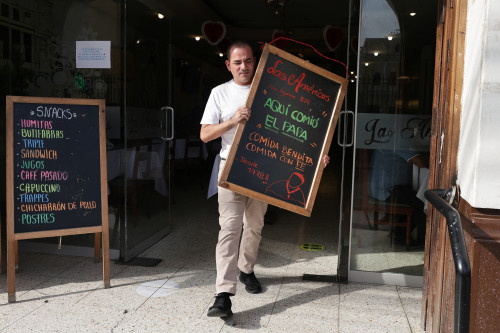 SNACKS
HUMITAS
BUTIFARRAS
TRIPLE
SANDWICH
JUGOS
CAFÉ PASADO
CAPUCCINO
FRAPPES
CHICHARRÓN DE POLLO
POSTRES
Las Américas
AQUÍ COMIÓ
EL PAPA
COMIDA BENDITA
COMIDA CON FE
Desde